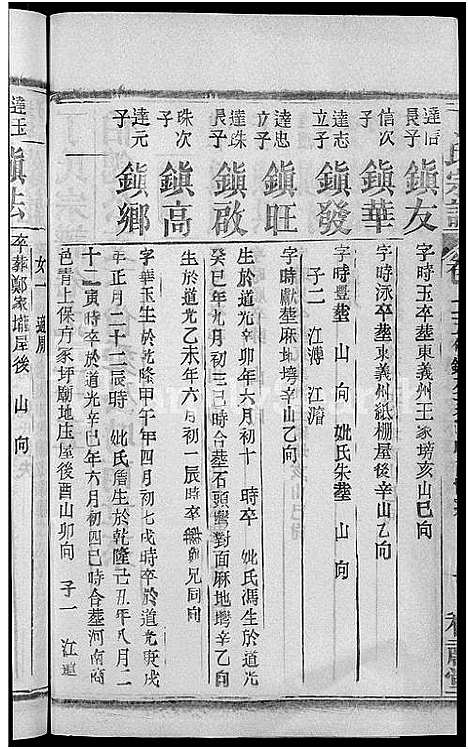 氏宗譜
達信
長子
鎮友
字時玉卒塟東義州王家塝亥山巳向
信次
子
鎮華
字時泳卒塟東義州紙棚屋後辛山乙向
達志
立子
鎮發
字時豐塟 山 向 妣氏朱塟 山 向
子二 江漙 江濳
達忠
立子
鎮旺
字時獻塟麻地塆辛山乙向
達珠
長子
鎮啟
生於道光辛卯年六月初十 時卒 妣氏馮生於道光
癸巳年九月初三巳時合塟石頭灣對面麻地灣辛乙向
珠次
子
鎮高
生於道光乙未年六月初一辰時卒 鄉兄同向
達元
子
鎮鄉
字華玉生於乾隆甲午年四月初七戌時卒於道光庚戌
年正月二十二辰時 妣氏詹生於乾隆己丑年八月二
十二寅時卒於道光辛巳年六月初四巳時合塟河南商
邑青上保方家坪廟地庄屋後酉山卯向 子一 江
達玉
鎮法
卒葬鄭家壠屋後 山 向
女一 適